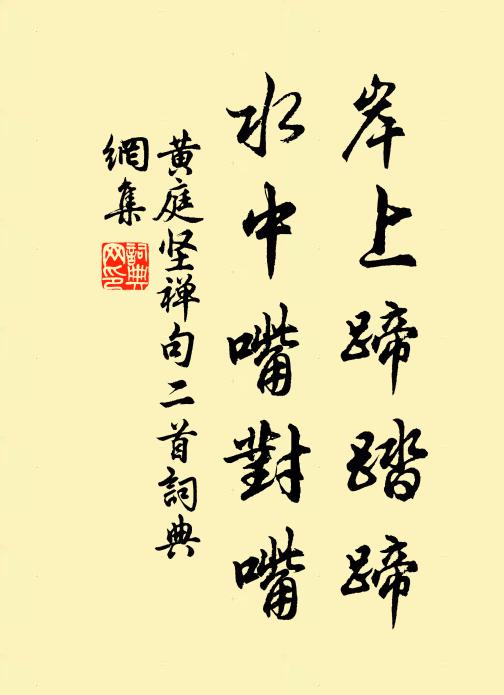 岸上蹄踏蹄
水中嘴對嘴
黄庭坚禅句二首詞典
網集
詞典网印